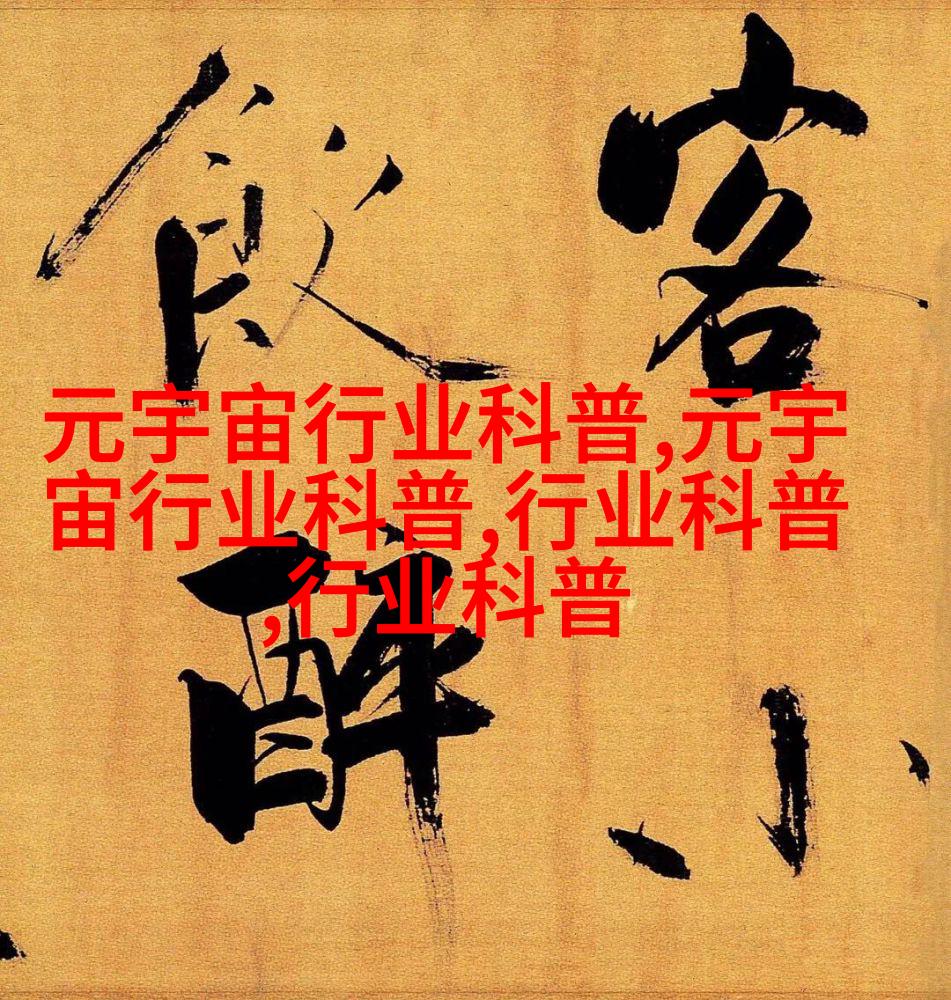 客小
飲醉
元宇宙行业科普,元宇
宙行业科普,行业科普
,行业科普